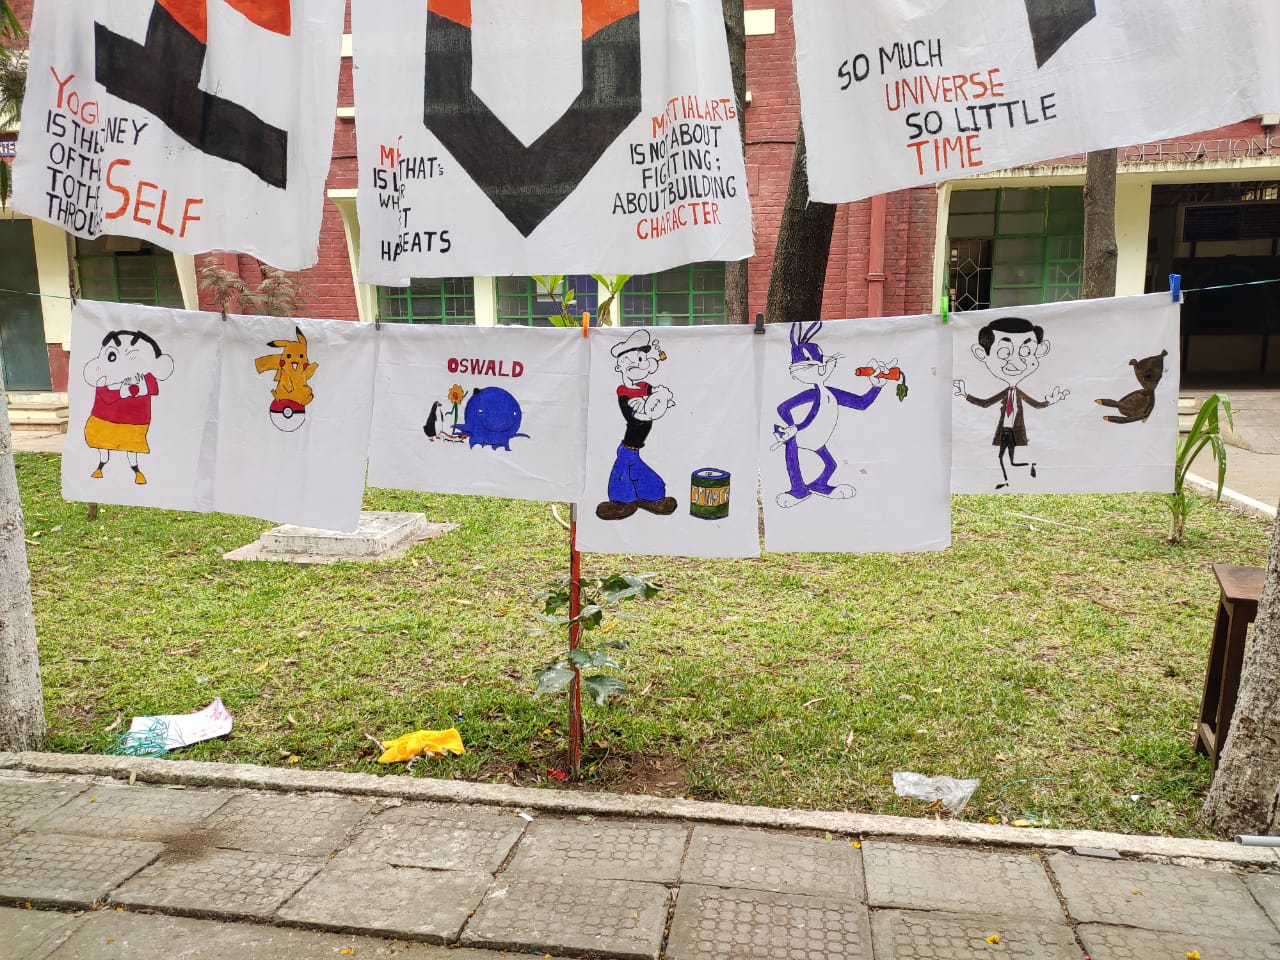 YOG
IS THE NEY
OF TH
TO TH
THROU
SELF
THAT's
IS
WH
BEATS
MARTIAL ARTS
IS NOT ABOUT
FIGHTING;
ABOUT BUILDING
CHARACTER
SO MUCH
UNIVERSE
SO LITTLE
TIME
OPERATIONS
OSWALD